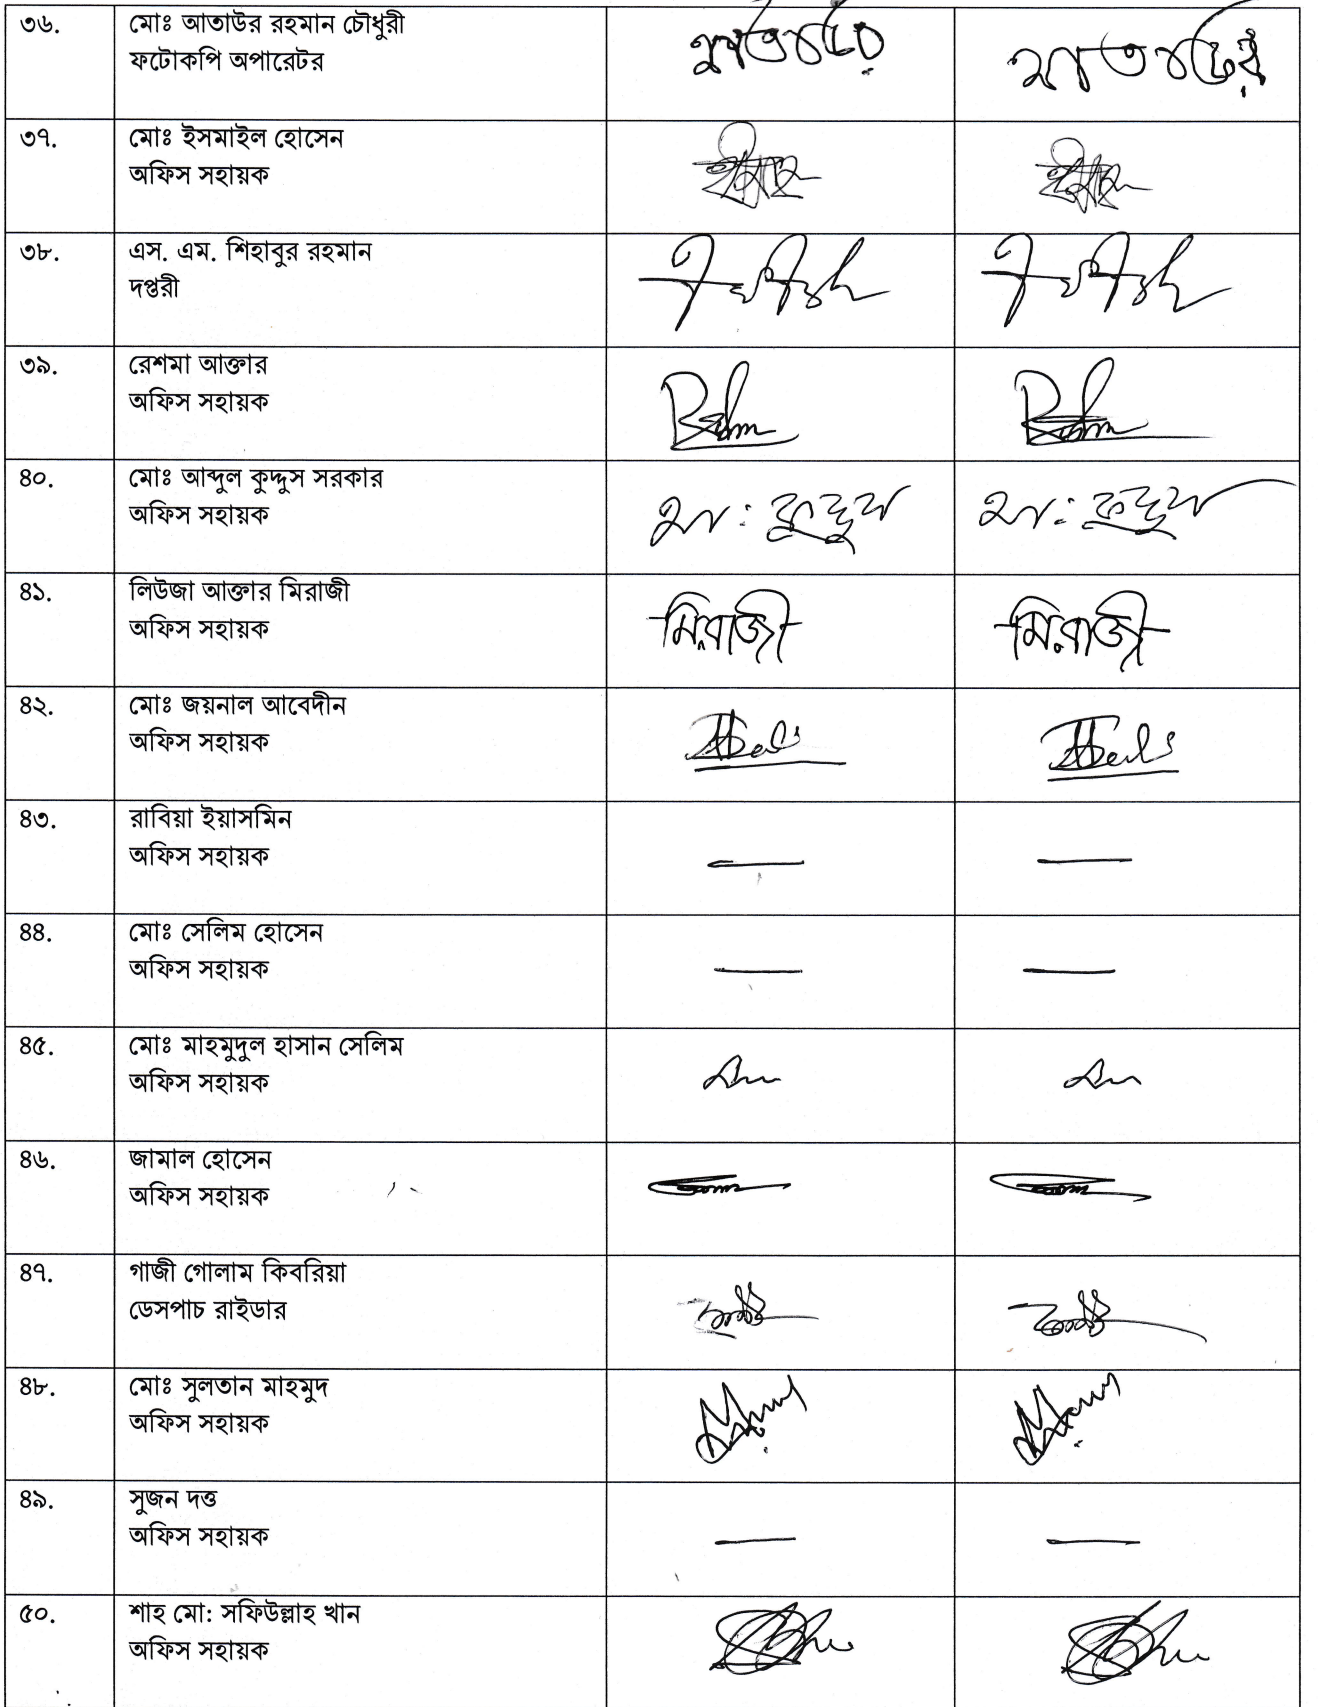 ৩৬. মোঃ আতাউর রহমান চৌধুরী
ফটোকপি অপারেটর
৩৭. মোঃ ইসমাইল হোসেন
অফিস সহায়ক
৩৮. এস. এম. শিহাবুর রহমান
দপ্তরী
৩৯. রেশমা আক্তার
অফিস সহায়ক
৪০. মোঃ আব্দুল কুদ্দুস সরকার
অফিস সহায়ক
৪১. লিউজা আক্তার মিরাজী
অফিস সহায়ক
মিরাজী মিরাজী
৪২. মোঃ জয়নাল আবেদীন
অফিস সহায়ক
৪৩. রাবিয়া ইয়াসমিন
অফিস সহায়ক
— —
৪৪. মোঃ সেলিম হোসেন
অফিস সহায়ক
— —
৪৫. মোঃ মাহমুদুল হাসান সেলিম
অফিস সহায়ক
৪৬. জামাল হোসেন
অফিস সহায়ক
৪৭. গাজী গোলাম কিবরিয়া
ডেসপাচ রাইডার
৪৮. মোঃ সুলতান মাহমুদ
অফিস সহায়ক
৪৯. সুজন দত্ত
অফিস সহায়ক
— —
৫০. শাহ মো: সফিউল্লাহ খান
অফিস সহায়ক